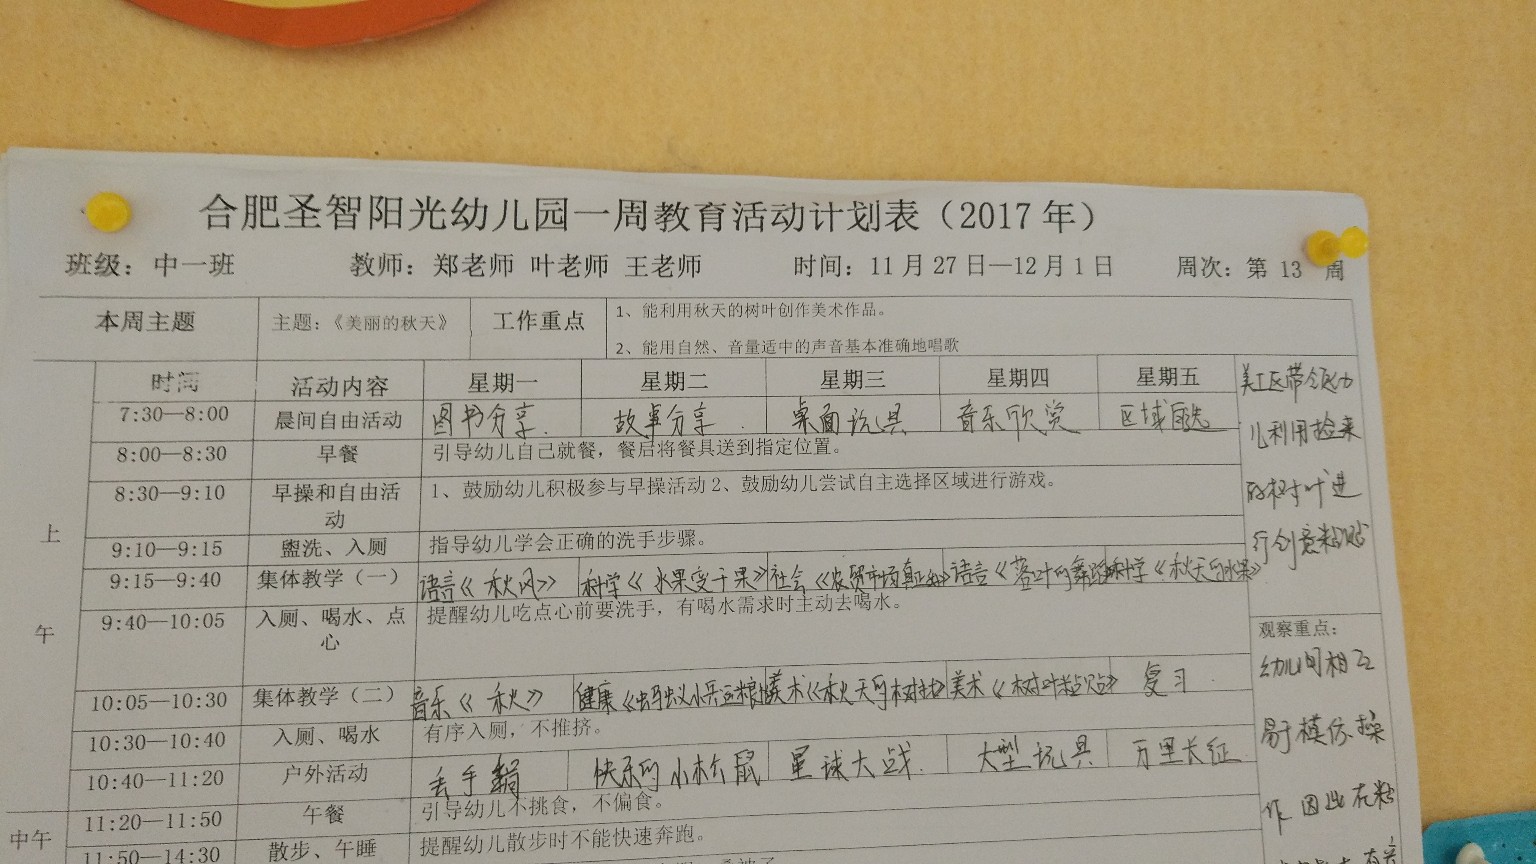 合肥圣智阳光幼儿园一周教育活动计划表（2017 年）
班级：中一班 教师：郑老师 叶老师 王老师 时间：11 月 27 日—12 月 1 日 周次：第 13 周
本周主题 主题：《美丽的秋天》 工作重点 1、能利用秋天的树叶创作美术作品。
2、能用自然、音量适中的声音基本准确地唱歌
时间 活动内容 星期一 星期二 星期三 星期四 星期五
7:30—8:00 晨间自由活动 图书分享. 故事分享. 桌面玩具 音乐欣赏 区域自选
8:00—8:30 早餐 引导幼儿自己就餐，餐后将餐具送到指定位置。
8:30—9:10 早操和自由活动 1、鼓励幼儿积极参与早操活动 2、鼓励幼儿尝试自主选择区域进行游戏。
上午
9:10—9:15 盥洗、入厕 指导幼儿学会正确的洗手步骤。
9:15—9:40 集体教学（一） 语言《秋风》 科学《水果变干果》 社会《农贸市场 语言《落叶的舞蹈 科学《秋天的水果》
9:40—10:05 入厕、喝水、点心 提醒幼儿吃点心前要洗手，有喝水需求时主动去喝水。
10:05—10:30 集体教学（二） 音乐《秋》 健康《蚂蚁小兵运粮 美术《秋天的树林》 美术《树叶粘贴》 复习
10:30—10:40 入厕、喝水 有序入厕，不推挤。
10:40—11:20 户外活动 丢手绢 快乐的小松鼠 星球大战. 大型玩具 万里长征
中午
11:20—11:50 午餐 引导幼儿不挑食，不偏食。
11:50—14:30 散步、午睡 提醒幼儿散步时不能快速奔跑。
美工区带领幼
儿利用捡来
的树叶进
行创意粘贴
观察重点：
幼儿间相互
易于模仿操
作 因此在粘